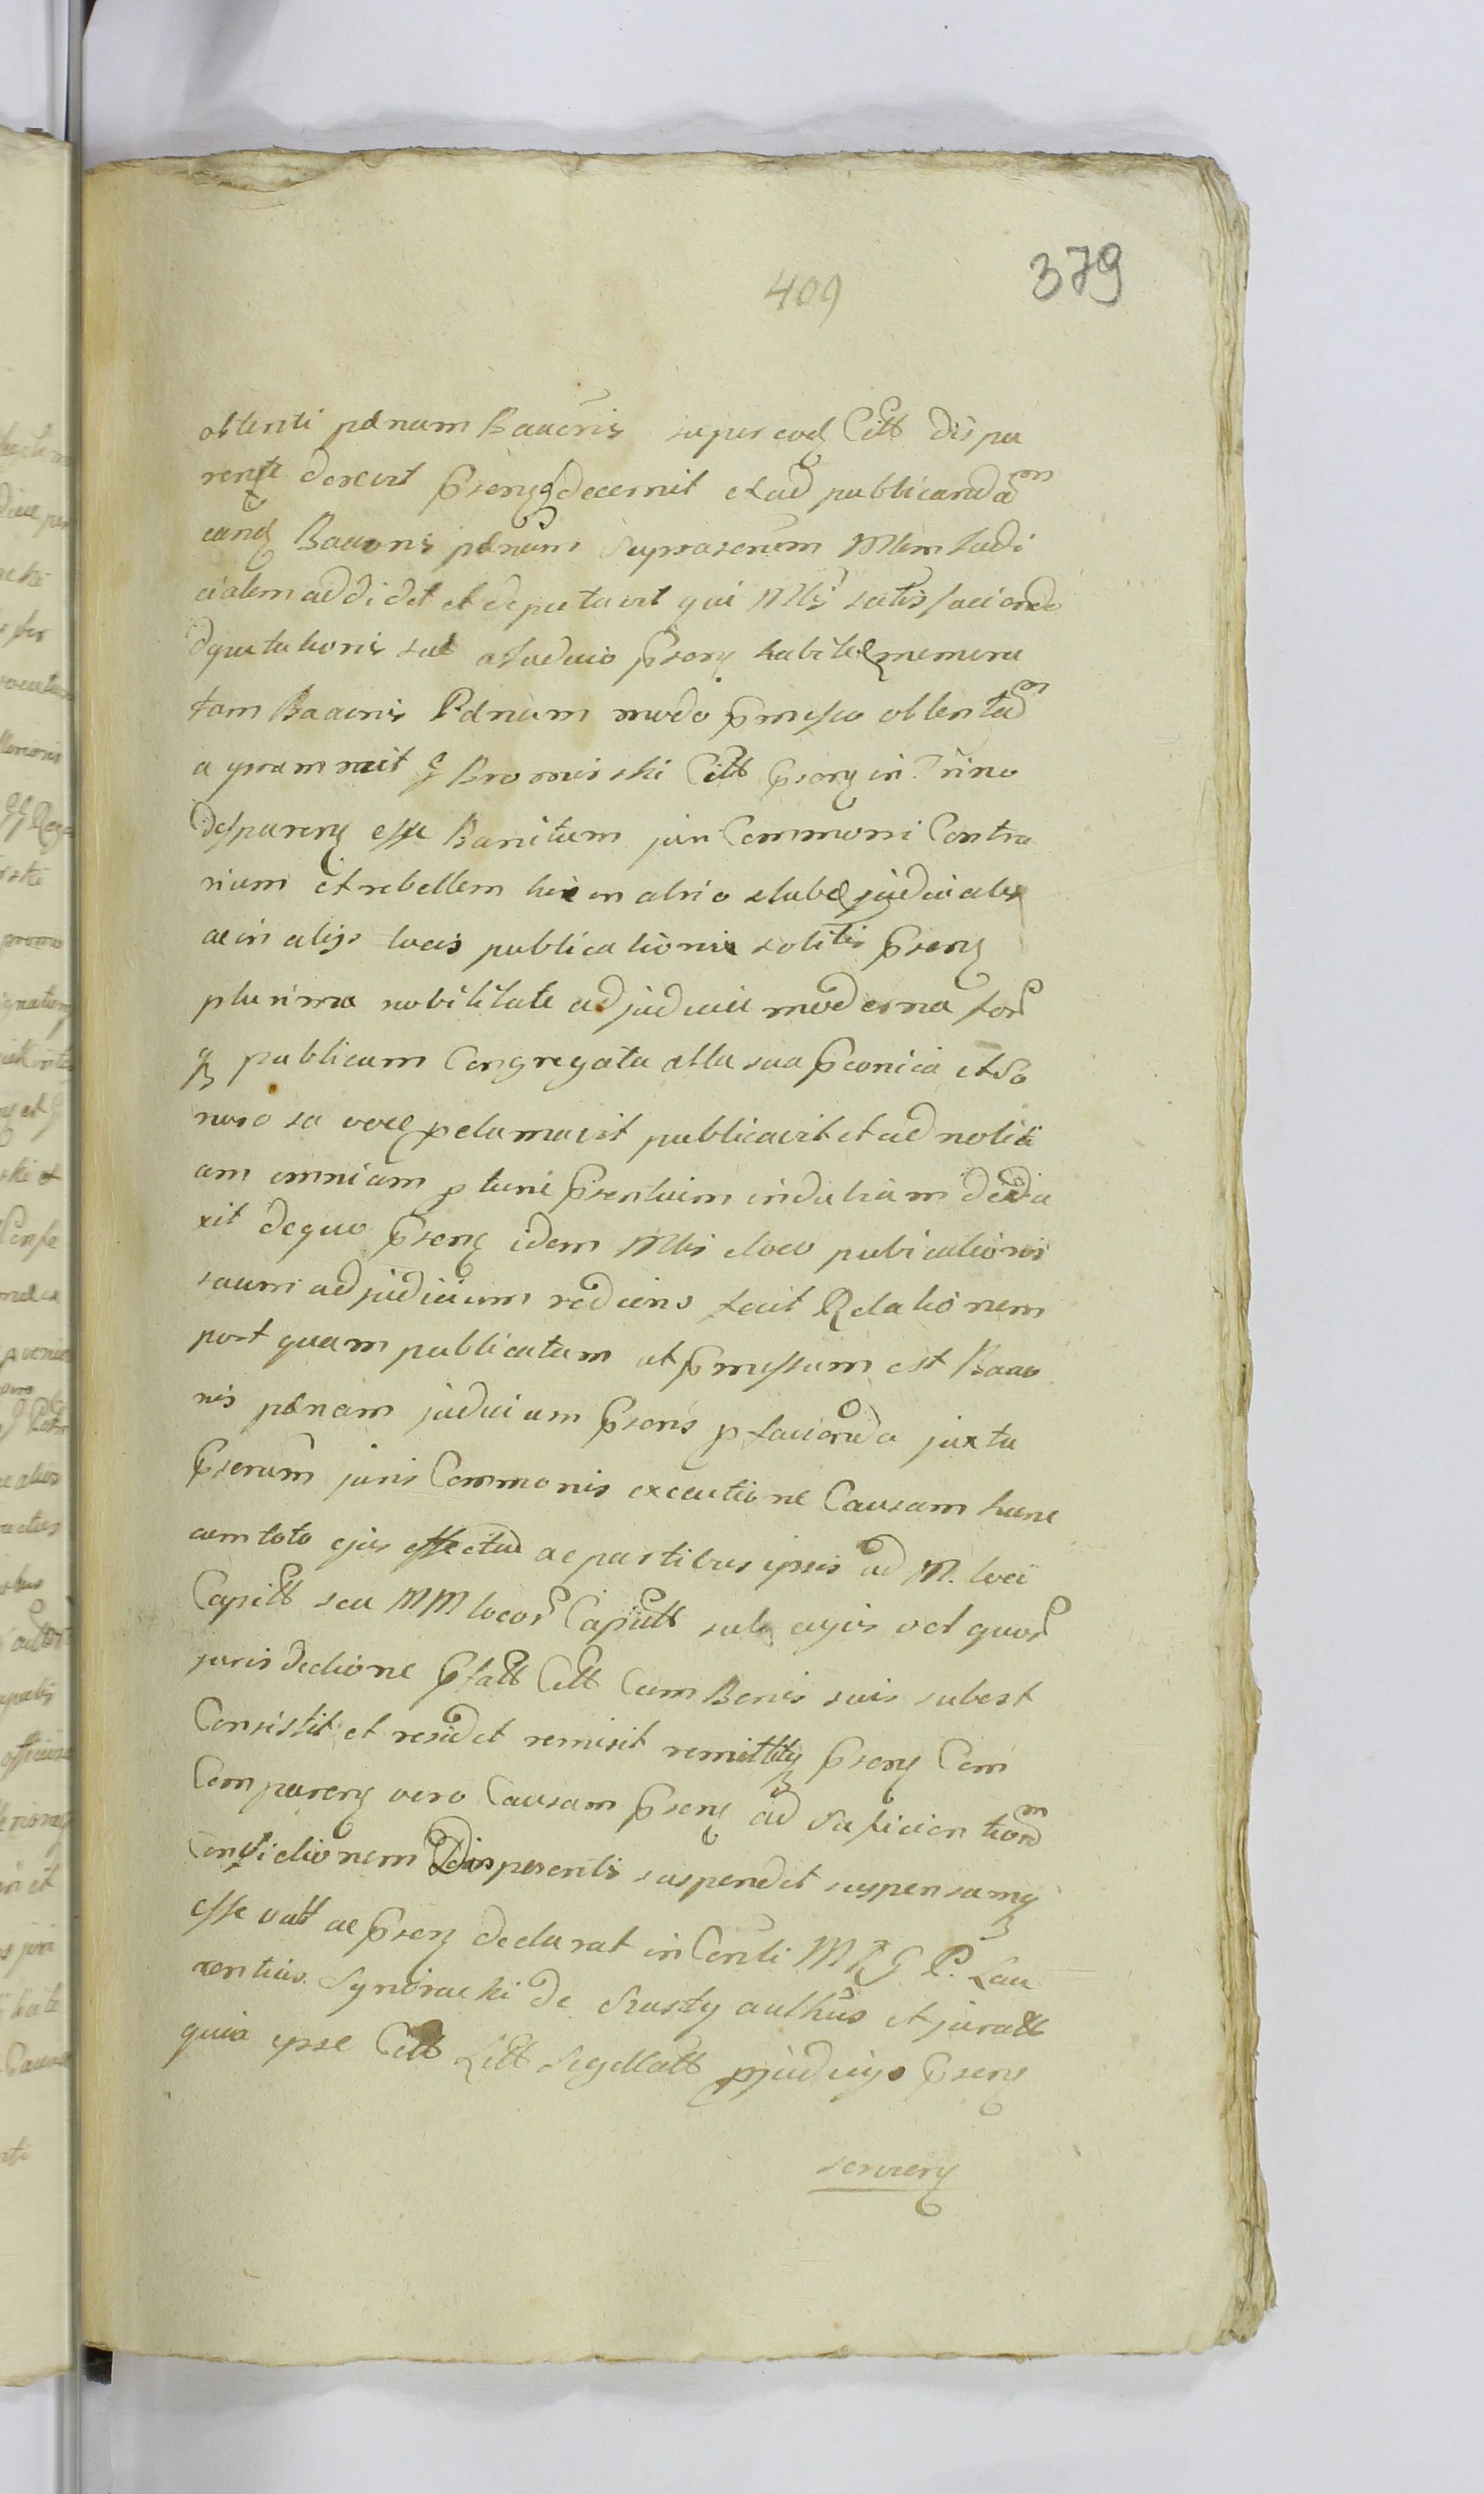 409
379
obtenti pænam Banōnis super eodʒ Citt dispa
rente decrevit pñsenʒ decernit et ad publicandam
eandʒ Banōnis pænam suprascrām Mlem Judi
cialem addidit et deputavit qui Mls satisfaciendo
deputationis suæ a Judicio pñsenʒ habitæ memora
tam Banōnis Pænam modo pmisso obtentam
a pram nuit G Bromirski Citt pñsenʒ in Trino
disparenʒ esse Banitum juri Communi Contra
rium et rebellem hic in atrio stubæ judicialis
ac in alijs locis publicationis solitis pñsenʒ
plurima nobilitate ad judicia moderna for
qʒ publicum Congregata alta sua pconica et So
nora sa voce pclamavit publicavit et ad notiti
am omnium p tunc pñsentium indubiam dedu
xit de quo pñsenʒ idem Mlis e loco publicationis
suum ad judicium rediens fecit Relationem
post quam publicatam ut pmissum est Bano
nis pænam judicium pñsens p facienda juxta
pscrām juris Communis executione Causam hanc
cum toto ejus effectu ac partibus ipsis ad M. loci
Capitt seu MM locor Capitt sub cujus vel quor
jurisdictione pfatt Citt Cum Bonis suis subest
Consistit et residet remisit remittitqʒ pñsenʒ Cum
Comparenʒ vero Causam pñsenʒ ad Suficientiorem
Convictionem Disparentis suspendit suspensamqʒ
esse vult ac pñsenʒ declarat in Conti M R G P. Lau
rentius Syniorucki de Srusty authus et juratt
quia ipse Citt Litt Sigillatt p judicijo pñsens
servienʒ